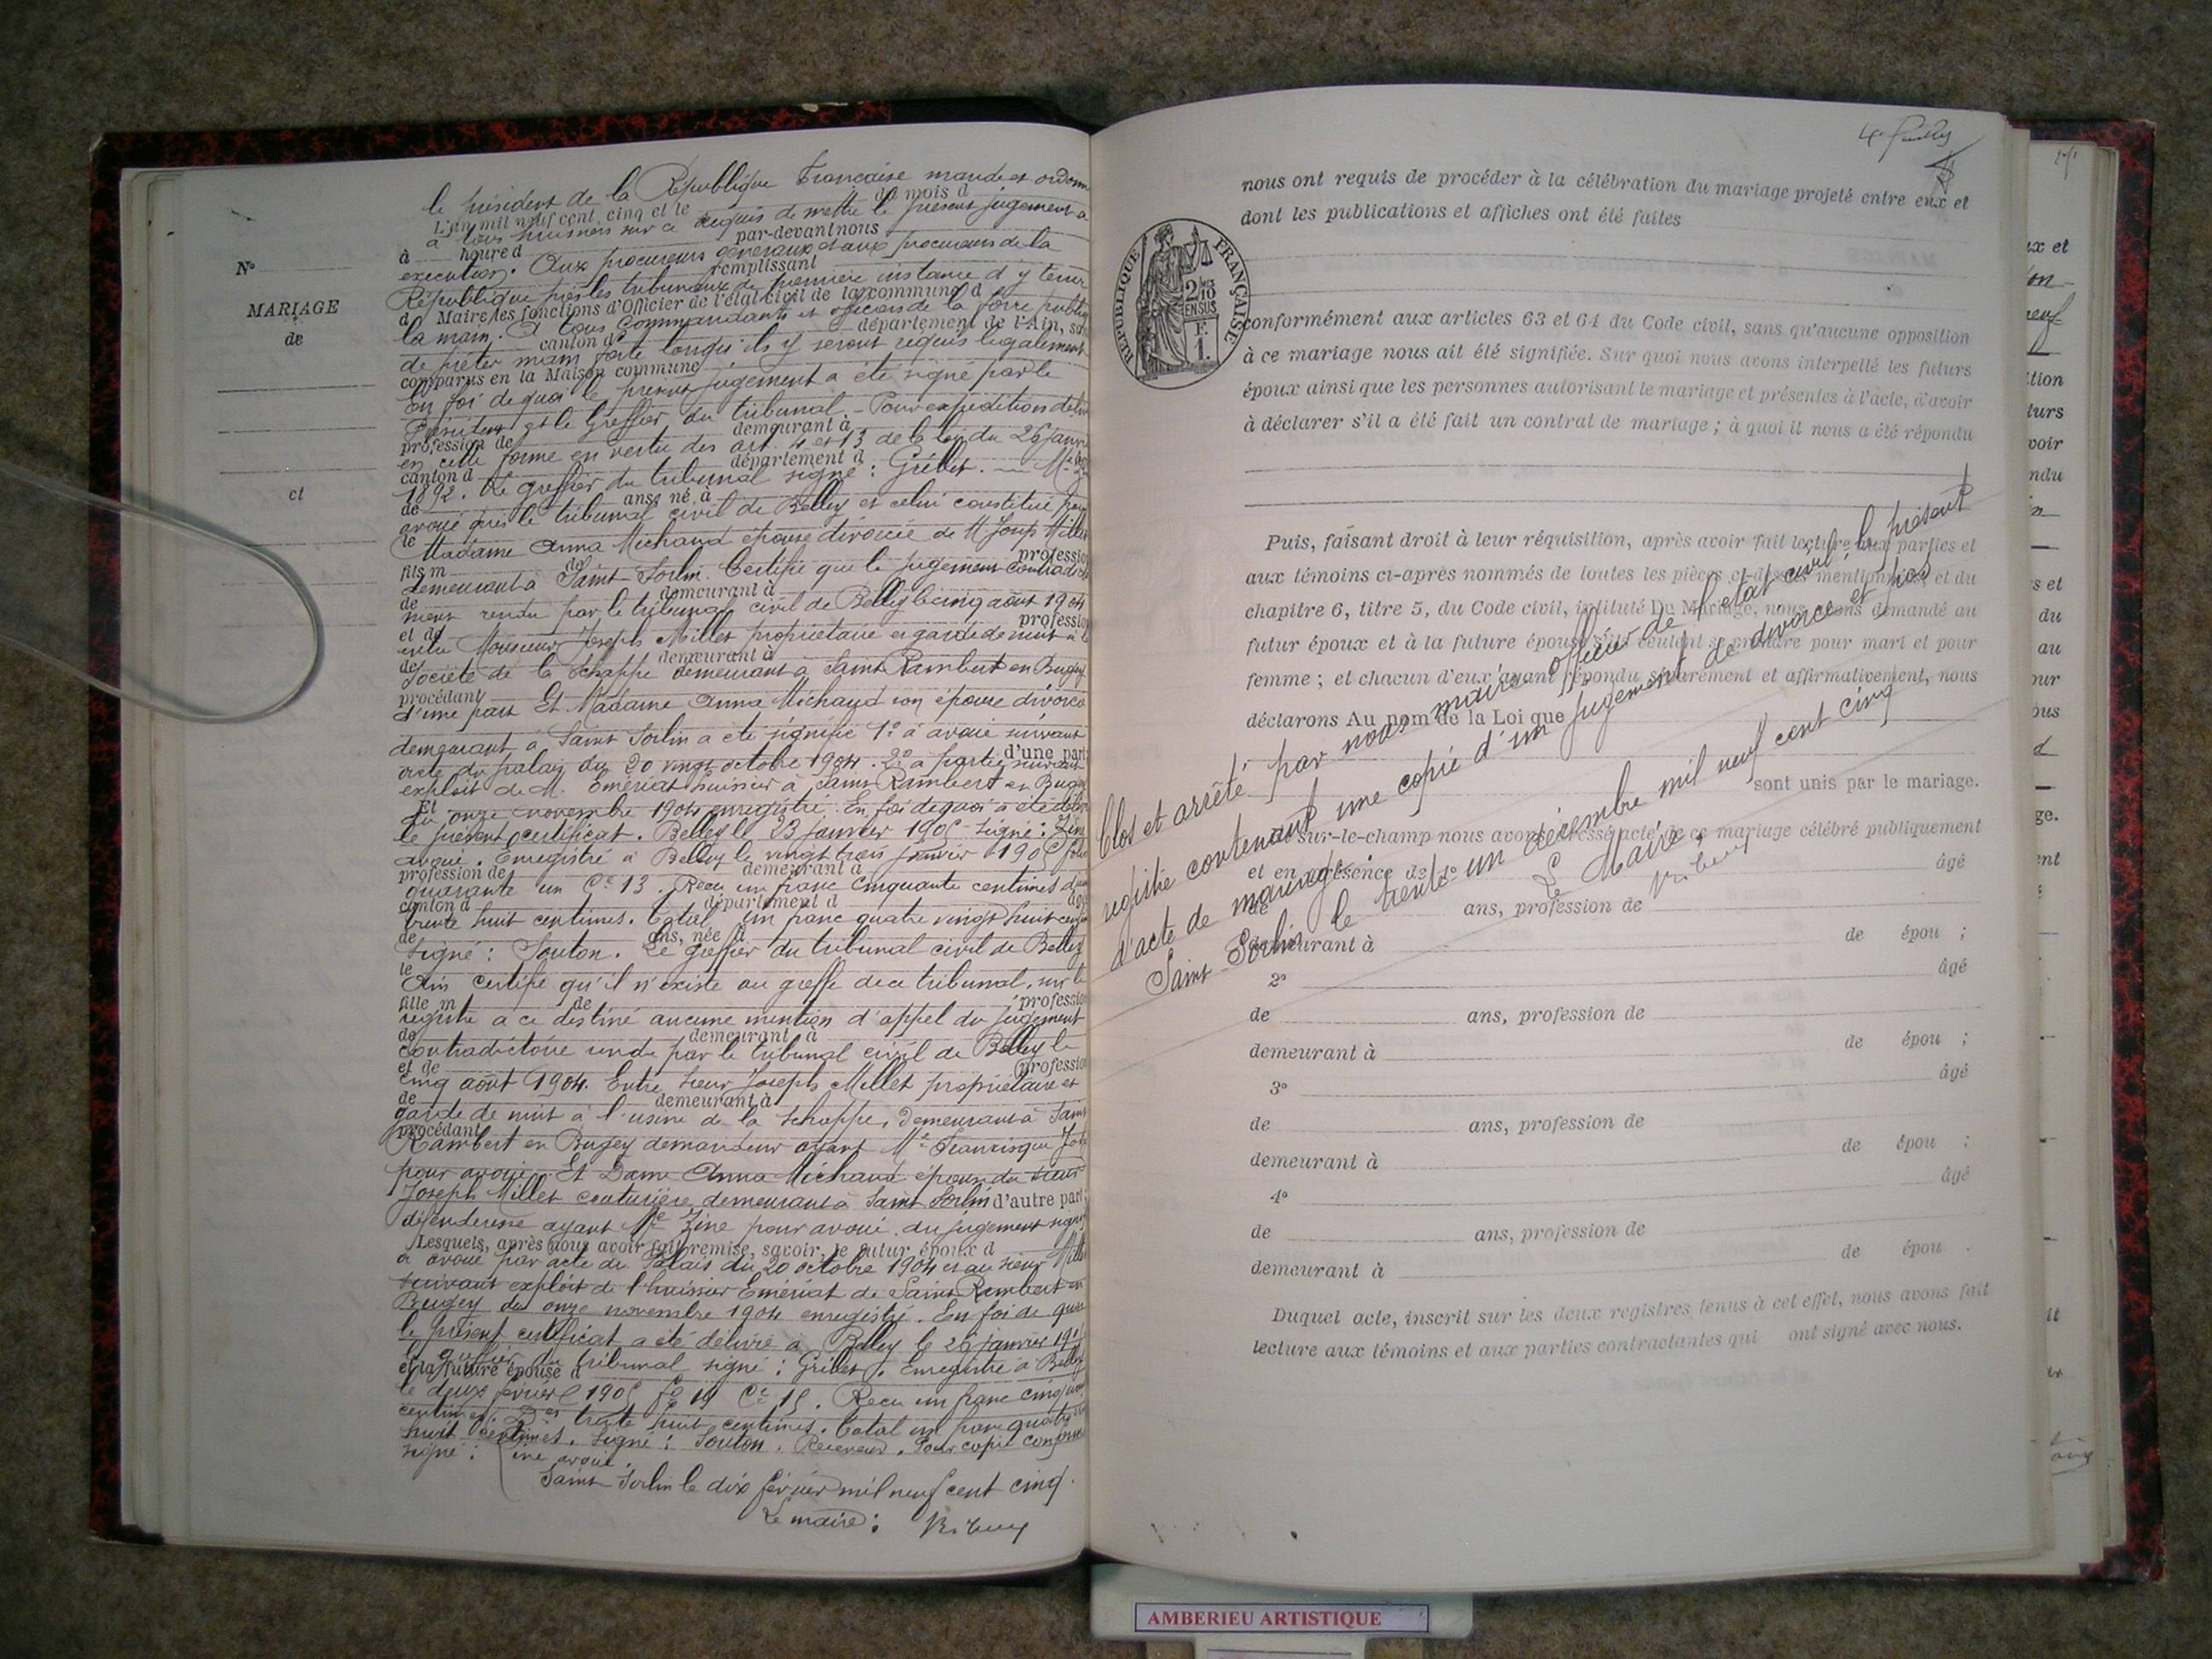 le président de la République Française mande et ordonne
L'an mil neuf cent cinq et le du mois d
à tous huissiers sur ce requis de mettre le présent jugement à
à heure d par-devant nous
execution. Aux procureurs généraux et aux procureurs de la
remplissant
République près les tribunaux de première instance d'y tenir
d Maire les fonctions d'Officier de l'état civil de la commune d
la main. A tous Commandants et officiers de la force publiq
canton d département de l'Ain, so
de prêter main forte lorsqu'ils y seront requis legalement
comparus en la Maison commune
En foi de quoi le présent jugement a été signé par le
Président et le Greffier du tribunal. - Pour expédition déliv
profession de demeurant à
en cette forme en vertu des art. 4 et 13 de la loi du 26 janv
canton d département d
1892. Le greffier du tribunal signé : Grillet.
de ans né à
avoué près le tribunal civil de Belley et celui constitué pour
le
Madame Anna Michaud épouse divorcée de M. Joseph Millet
fils m de profession
demeurant à Saint-Sorlin. Certifie que le jugement contradic
de demeurant à
ment rendu par le tribunal civil de Belley le cinq août 1904
et de profession
entre Monsieur Joseph Millet propriétaire et garde de nuit à la
de demeurant à
Société de la Schappe demeurant à Saint Rambert en Bugey
procédant
d'une part Et Madame Anna Michaud son épouse divorcé
demeurant à Saint Sorlin a été signifié 1° à avoué suivant
d'une part
acte du palais du 20 vingt octobre 1904. 2° à partie suivant
exploit de M. Emériat huissier à Saint Rambert en Bugey
Et
du onze novembre 1904 enregistré. En foi de quoi a été déliv
le présent certificat. Belley le 23 janvier 1905 signé : Zine
avoué. Enregistré à Belley le vingt trois janvier 1905 folio
profession de demeurant à
quarante un Ce 13. Reçu un franc cinquante centimes
canton d département d âgé
trente huit centimes. Total un franc quatre vingt huit cent
de ans, née à
signé : Souton. Le greffier du tribunal civil de Belley
le
Ain certifie qu'il n'existe au greffe de ce tribunal, sur le
fille m de profession
registre à ce destiné aucune mention d'appel du jugement
de demeurant à
contradictoire rendu par le tribunal civil de Belley le
et de profession
cinq août 1904. Entre sieur Joseph Millet propriétaire et
de demeurant à
garde de nuit à l'usine de la Schappe, demeurant à Saint
procédant
Rambert en Bugey demandeur ayant Me Francisque
pour avoué. Et Dame Anna Michaud épouse du sieur
Joseph Millet couturière demeurant à Saint Sorlin d'autre part
défenderesse ayant Me Zine pour avoué, du jugement signi
Lesquels, après nous avoir fait remise, savoir, le futur époux d
à avoué par acte du Palais du 20 octobre 1904 et au sieur Mill
suivant exploit de l'huissier Emériat de Saint Rambert en
Bugey du onze novembre 1904 enregistré. En foi de quoi
le présent certificat a été délivré à Belley le 26 janvier 190
le greffier du tribunal signé : Grillet. Enregistré à Belley
et la future épouse d
le deux février 1905 fo 19 Ce 15. Reçu un franc cinquan
centimes. Des trente huit centimes. Total un franc quatre
huit centimes. Signé : Souton, Receveur. Pour copie conforme
signé : Zine avoué.
Saint-Sorlin le dix février mil neuf cent cinq.
Le maire :
No
MARIAGE
de
et
nous ont requis de procéder à la célébration du mariage projeté entre eux et
dont les publications et affiches ont été faites
RÉPUBLIQUE FRANÇAISE
2/10 EN SUS
F. 1.
conformément aux articles 63 et 64 du Code civil, sans qu'aucune opposition
à ce mariage nous ait été signifiée. Sur quoi nous avons interpellé les futurs
époux ainsi que les personnes autorisant le mariage et présentes à l'acte, d'avoir
à déclarer s'il a été fait un contrat de mariage ; à quoi il nous a été répondu
Puis, faisant droit à leur réquisition, après avoir fait lecture aux parties et
aux témoins ci-après nommés de toutes les pièces ci-dessus mentionnées et du
chapitre 6, titre 5, du Code civil, intitulé Du Mariage, nous avons demandé au
futur époux et à la future épouse s'ils veulent se prendre pour mari et pour
femme ; et chacun d'eux ayant répondu séparément et affirmativement, nous
déclarons Au nom de la Loi que
sont unis par le mariage.
sur-le-champ nous avons dressé acte de ce mariage célébré publiquement
et en présence de 1° âgé
de ans, profession de
demeurant à de épou ;
2° âgé
de ans, profession de
demeurant à de épou ;
3° âgé
de ans, profession de
demeurant à de épou ;
4° âgé
de ans, profession de
demeurant à de épou .
Duquel acte, inscrit sur les deux registres tenus à cet effet, nous avons fait
lecture aux témoins et aux parties contractantes qui ont signé avec nous.
Clos et arrêté par nous maire officier de l'état civil, le présent
registre contenant une copie d'un jugement de divorce et pas
d'acte de mariage.
Saint-Sorlin le trente un décembre mil neuf cent cinq
Le Maire,
AMBERIEU ARTISTIQUE